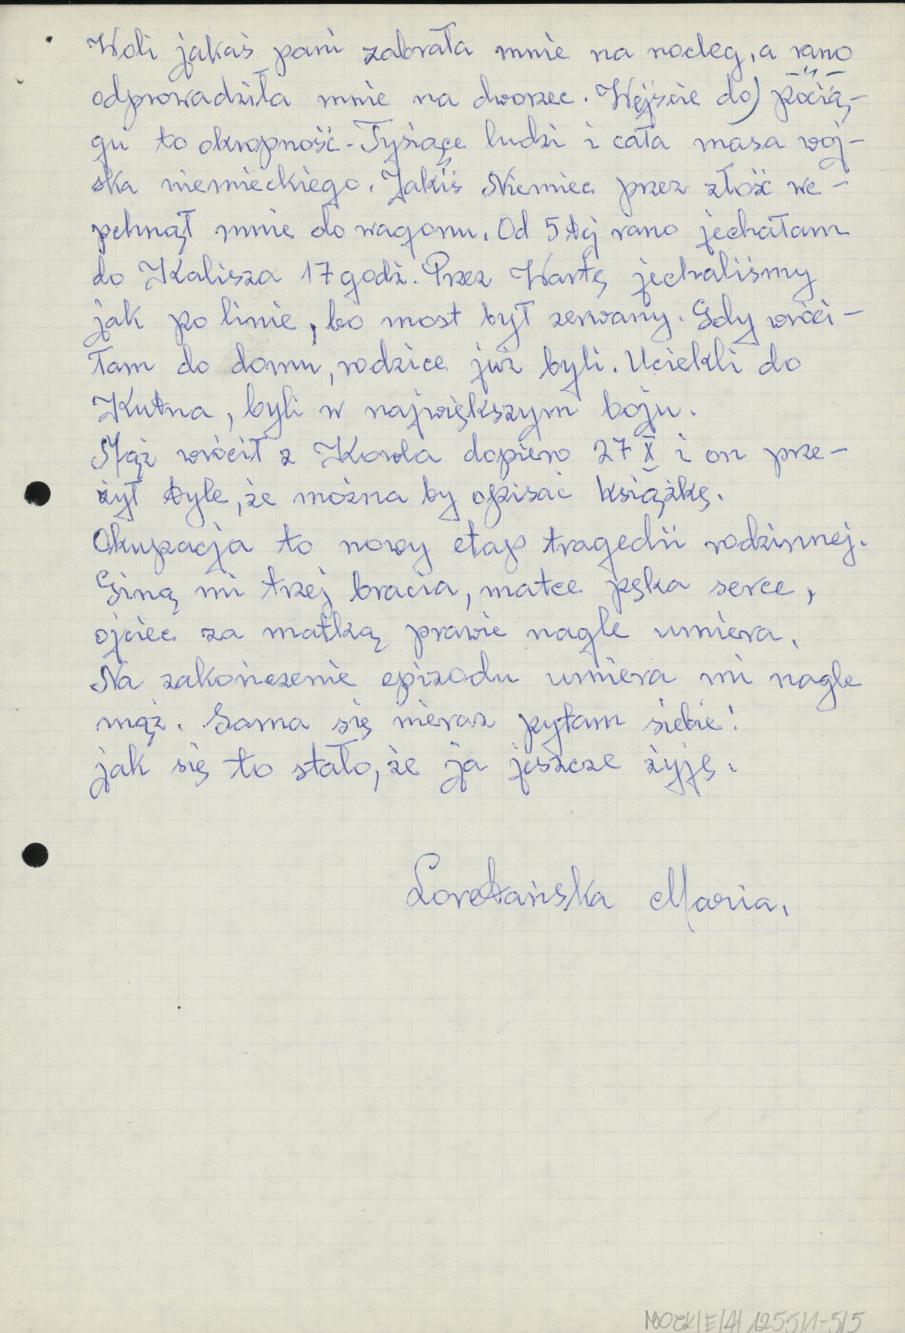 Woli jakaś pani zabrała mnie na nocleg, a rano
odprowadziła mnie na dworzec. Wejście do pocią-
gu to okropność. Tysiące ludzi i cała masa woj-
ska niemieckiego. Jakiś Niemiec przez złość we-
pchnął mnie do wagonu. Od 5 tej rano jechałam
do Kalisza 17 godz. Przez Wartę jechaliśmy
jak po linie, bo most był zerwany. Gdy wróci-
łam do domu, rodzice już byli. Uciekli do
Kutna, byli w największym boju.
Mąż wrócił z Kowla dopiero 27 X i on prze-
żył tyle, że można by opisać książkę.
Okupacja to nowy etap tragedii rodzinnej.
Giną mi trzej bracia, matce pęka serce,
ojciec za matką prawie nagle umiera.
Na zakończenie epizodu umiera mi nagle
mąż. Sama się nieraz pytam siebie!
jak się to stało, że ja jeszcze żyję.
Loretańska Maria.
/E/4/1255/1-5/5